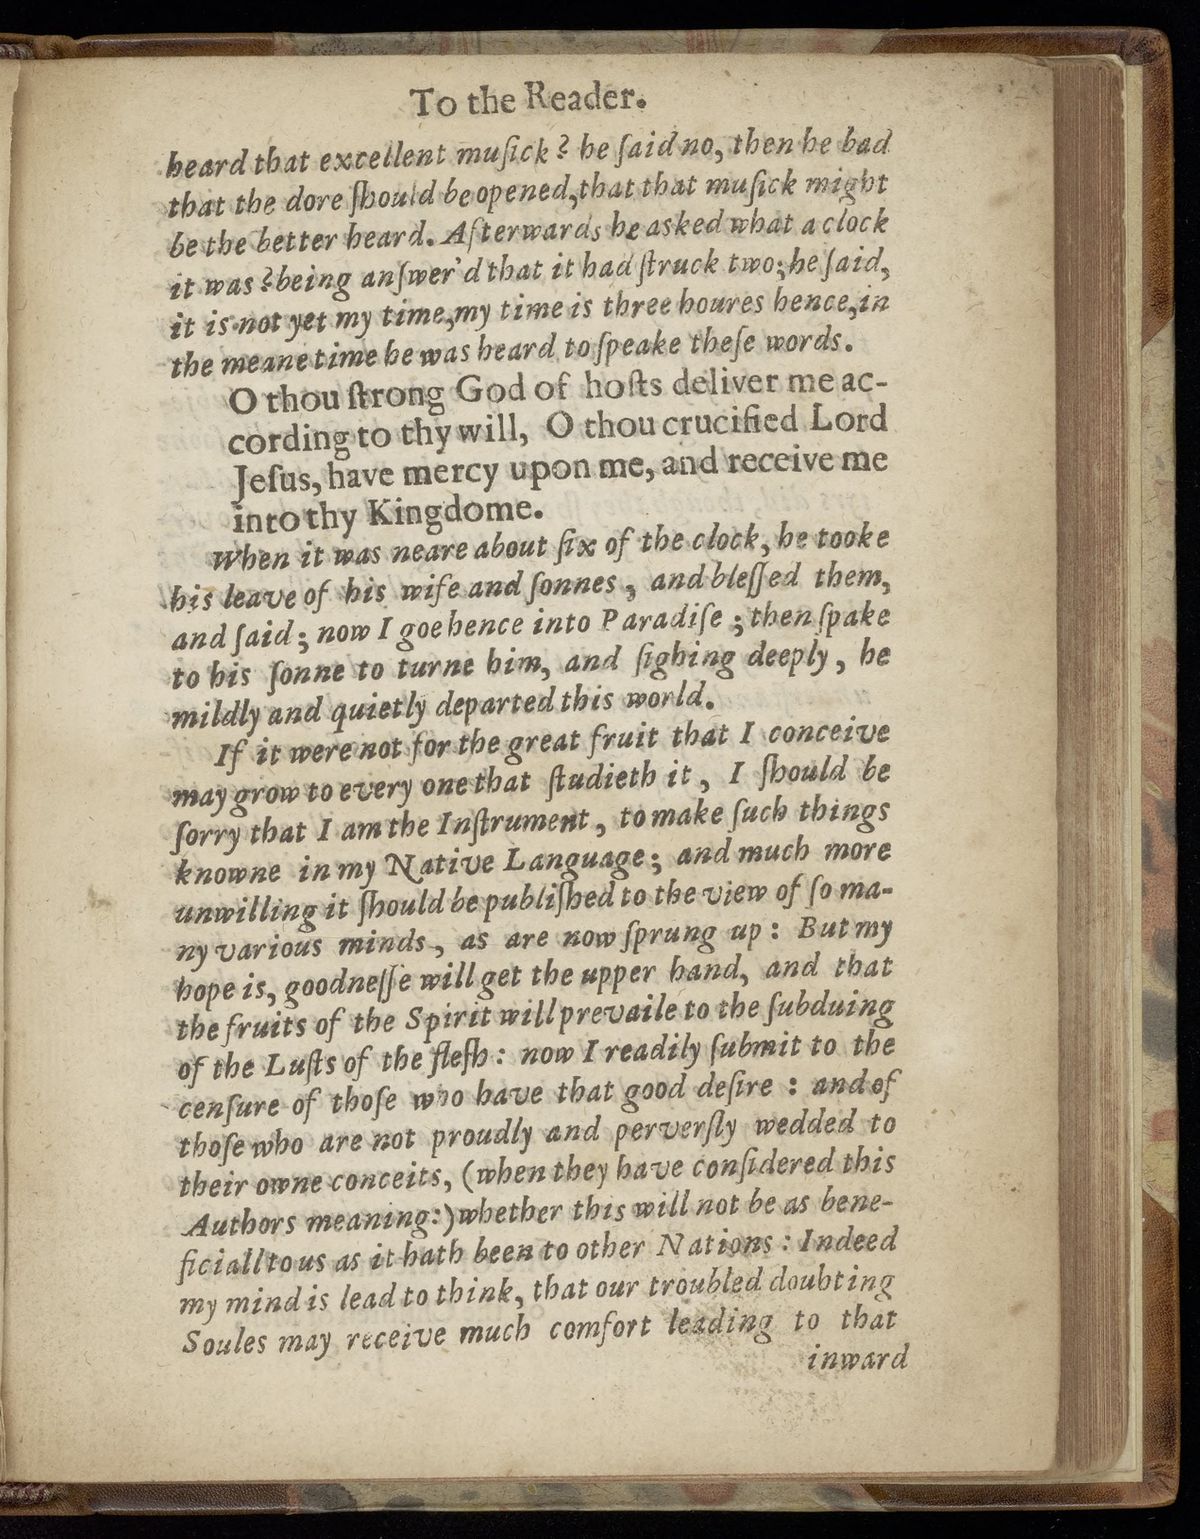 To the Reader.
heard that excellent muſick? he ſaid no, then he bad
that the dore ſhould be opened, that that muſick might
be the better heard. Afterwards he asked what a clock
it was? being anſwer'd that it had ſtruck two; he ſaid,
it is not yet my time, my time is three houres hence, in
the meane time he was heard to ſpeake theſe words.
O thou ſtrong God of hoſts deliver me ac-
cording to thy will, O thou crucified Lord
Jeſus, have mercy upon me, and receive me
into thy Kingdome.
When it was neare about ſix of the clock, he tooke
his leave of his wife and ſonnes, and bleſſed them,
and ſaid; now I goe hence into Paradiſe; then ſpake
to his ſonne to turne him, and ſighing deeply, he
mildly and quietly departed this world.
If it were not for the great fruit that I conceive
may grow to every one that ſtudieth it, I ſhould be
ſorry that I am the Inſtrument, to make ſuch things
knowne in my Native Language; and much more
unwilling it ſhould be publiſhed to the view of ſo ma-
ny various minds, as are now ſprung up: But my
hope is, goodneſſe will get the upper hand, and that
the fruits of the Spirit will prevaile to the ſubduing
of the Luſts of the fleſh: now I readily ſubmit to the
cenſure of thoſe who have that good deſire: and of
thoſe who are not proudly and perverſly wedded to
their owne conceits, (when they have conſidered this
Authors meaning:) whether this will not be as bene-
ficiall to us as it hath been to other Nations: Indeed
my mind is lead to think, that our troubled doubting
Soules may receive much comfort leading to that
inward